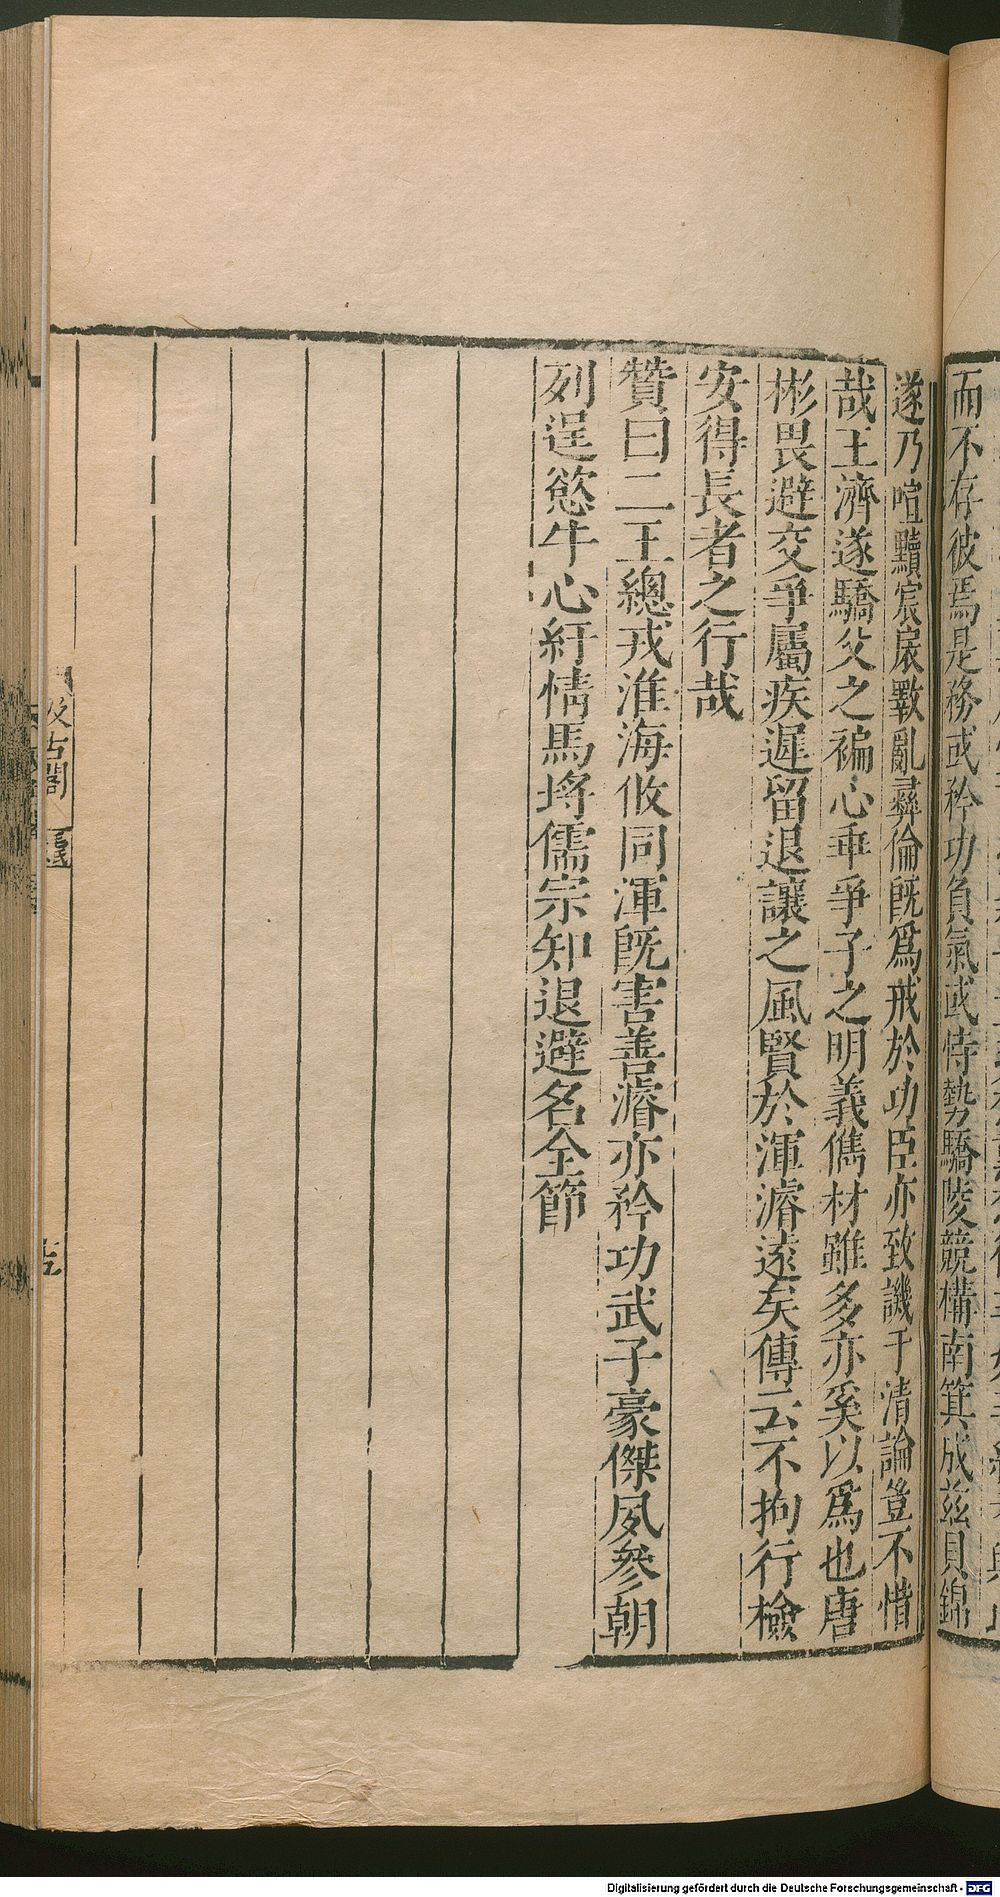 而不存彼焉是務或矜功負氣或恃勢驕陵競構南箕成兹貝錦
遂乃喧黷宸扆斁亂彝倫既爲戒於功臣亦致譏于清論豈不惜
哉王濟遂驕父之褊心乖爭子之明義儁材雖多亦奚以爲也唐
彬畏避交爭屬疾遲留退讓之風賢於渾濬遠矣傳云不拘行檢
安得長者之行哉
贊曰二王總戎淮海攸同渾既害善濬亦矜功武子豪傑夙參朝
列逞慾牛心紆情馬埒儒宗知退避名全節
汲古閣
Digitalisierung gefördert durch die Deutsche Forschungsgemeinschaft - DFG